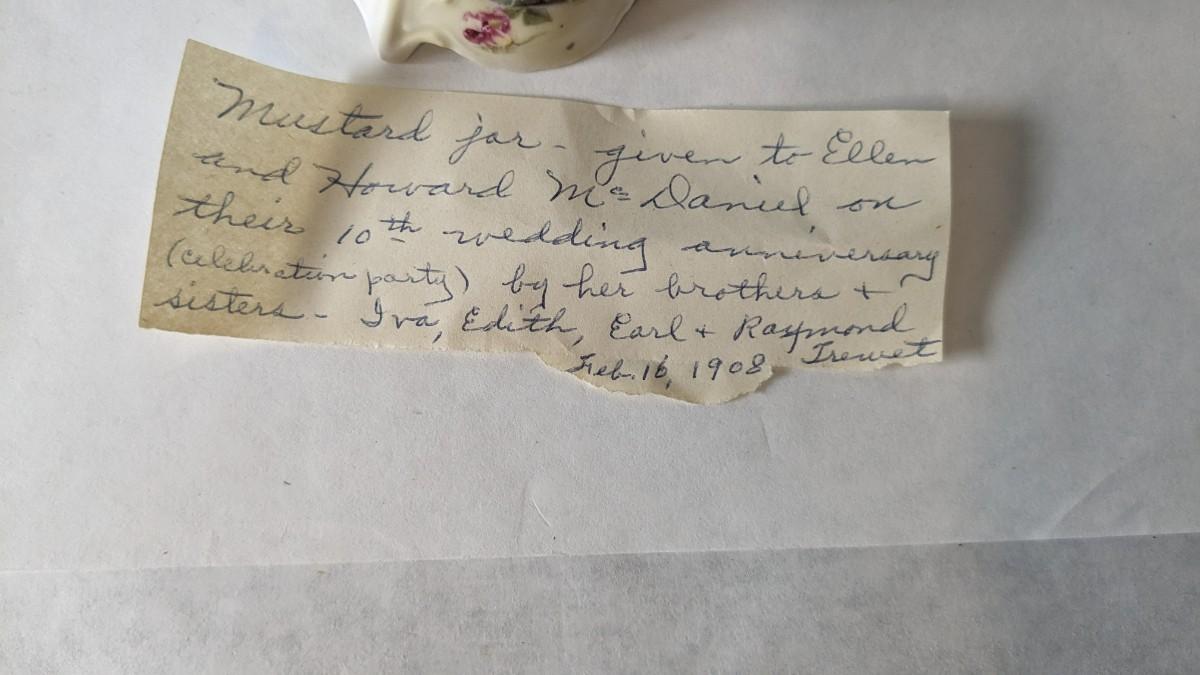 Mustard jar - given to Ellen
and Howard McDaniel on
their 10th wedding anniversary
(celebration party) by her brothers +
sisters - Iva, Edith, Earl + Raymond
Feb. 16, 1908 Trewet